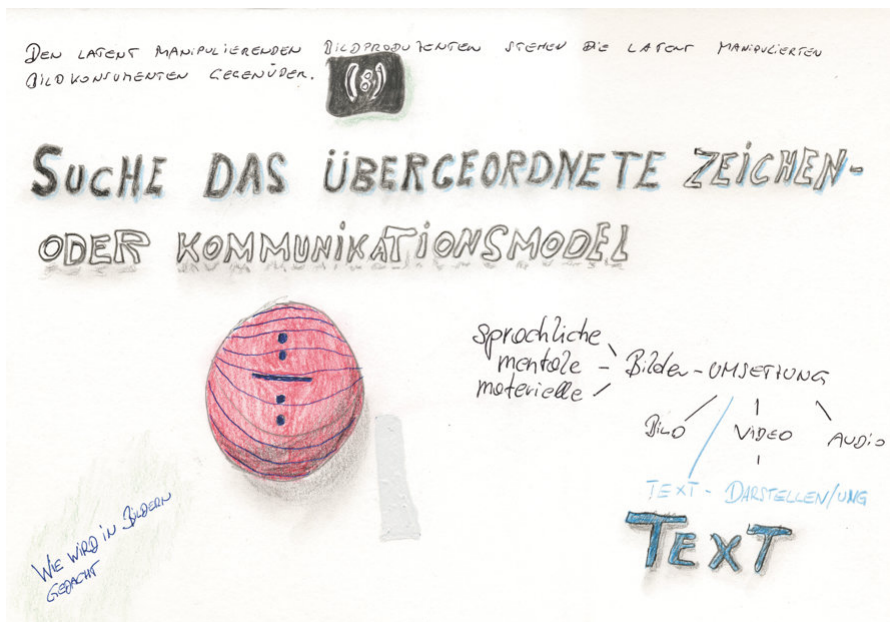 DEN LATENT MANIPULIERENDEN BILDPRODUZENTEN STEHEN DIE LATENT MANIPULIERTEN
BILDKONSUMENTEN GEGENÜBER.
(8)
SUCHE DAS ÜBERGEORDNETE ZEICHEN-
ODER KOMMUNIKATIONSMODEL
sprachliche
mentale - Bilder - UMSETZUNG
materielle
BILD VIDEO AUDIO
TEXT - DARSTELLEN/UNG
TEXT
WIE WIRD IN BILDERN
GEDACHT